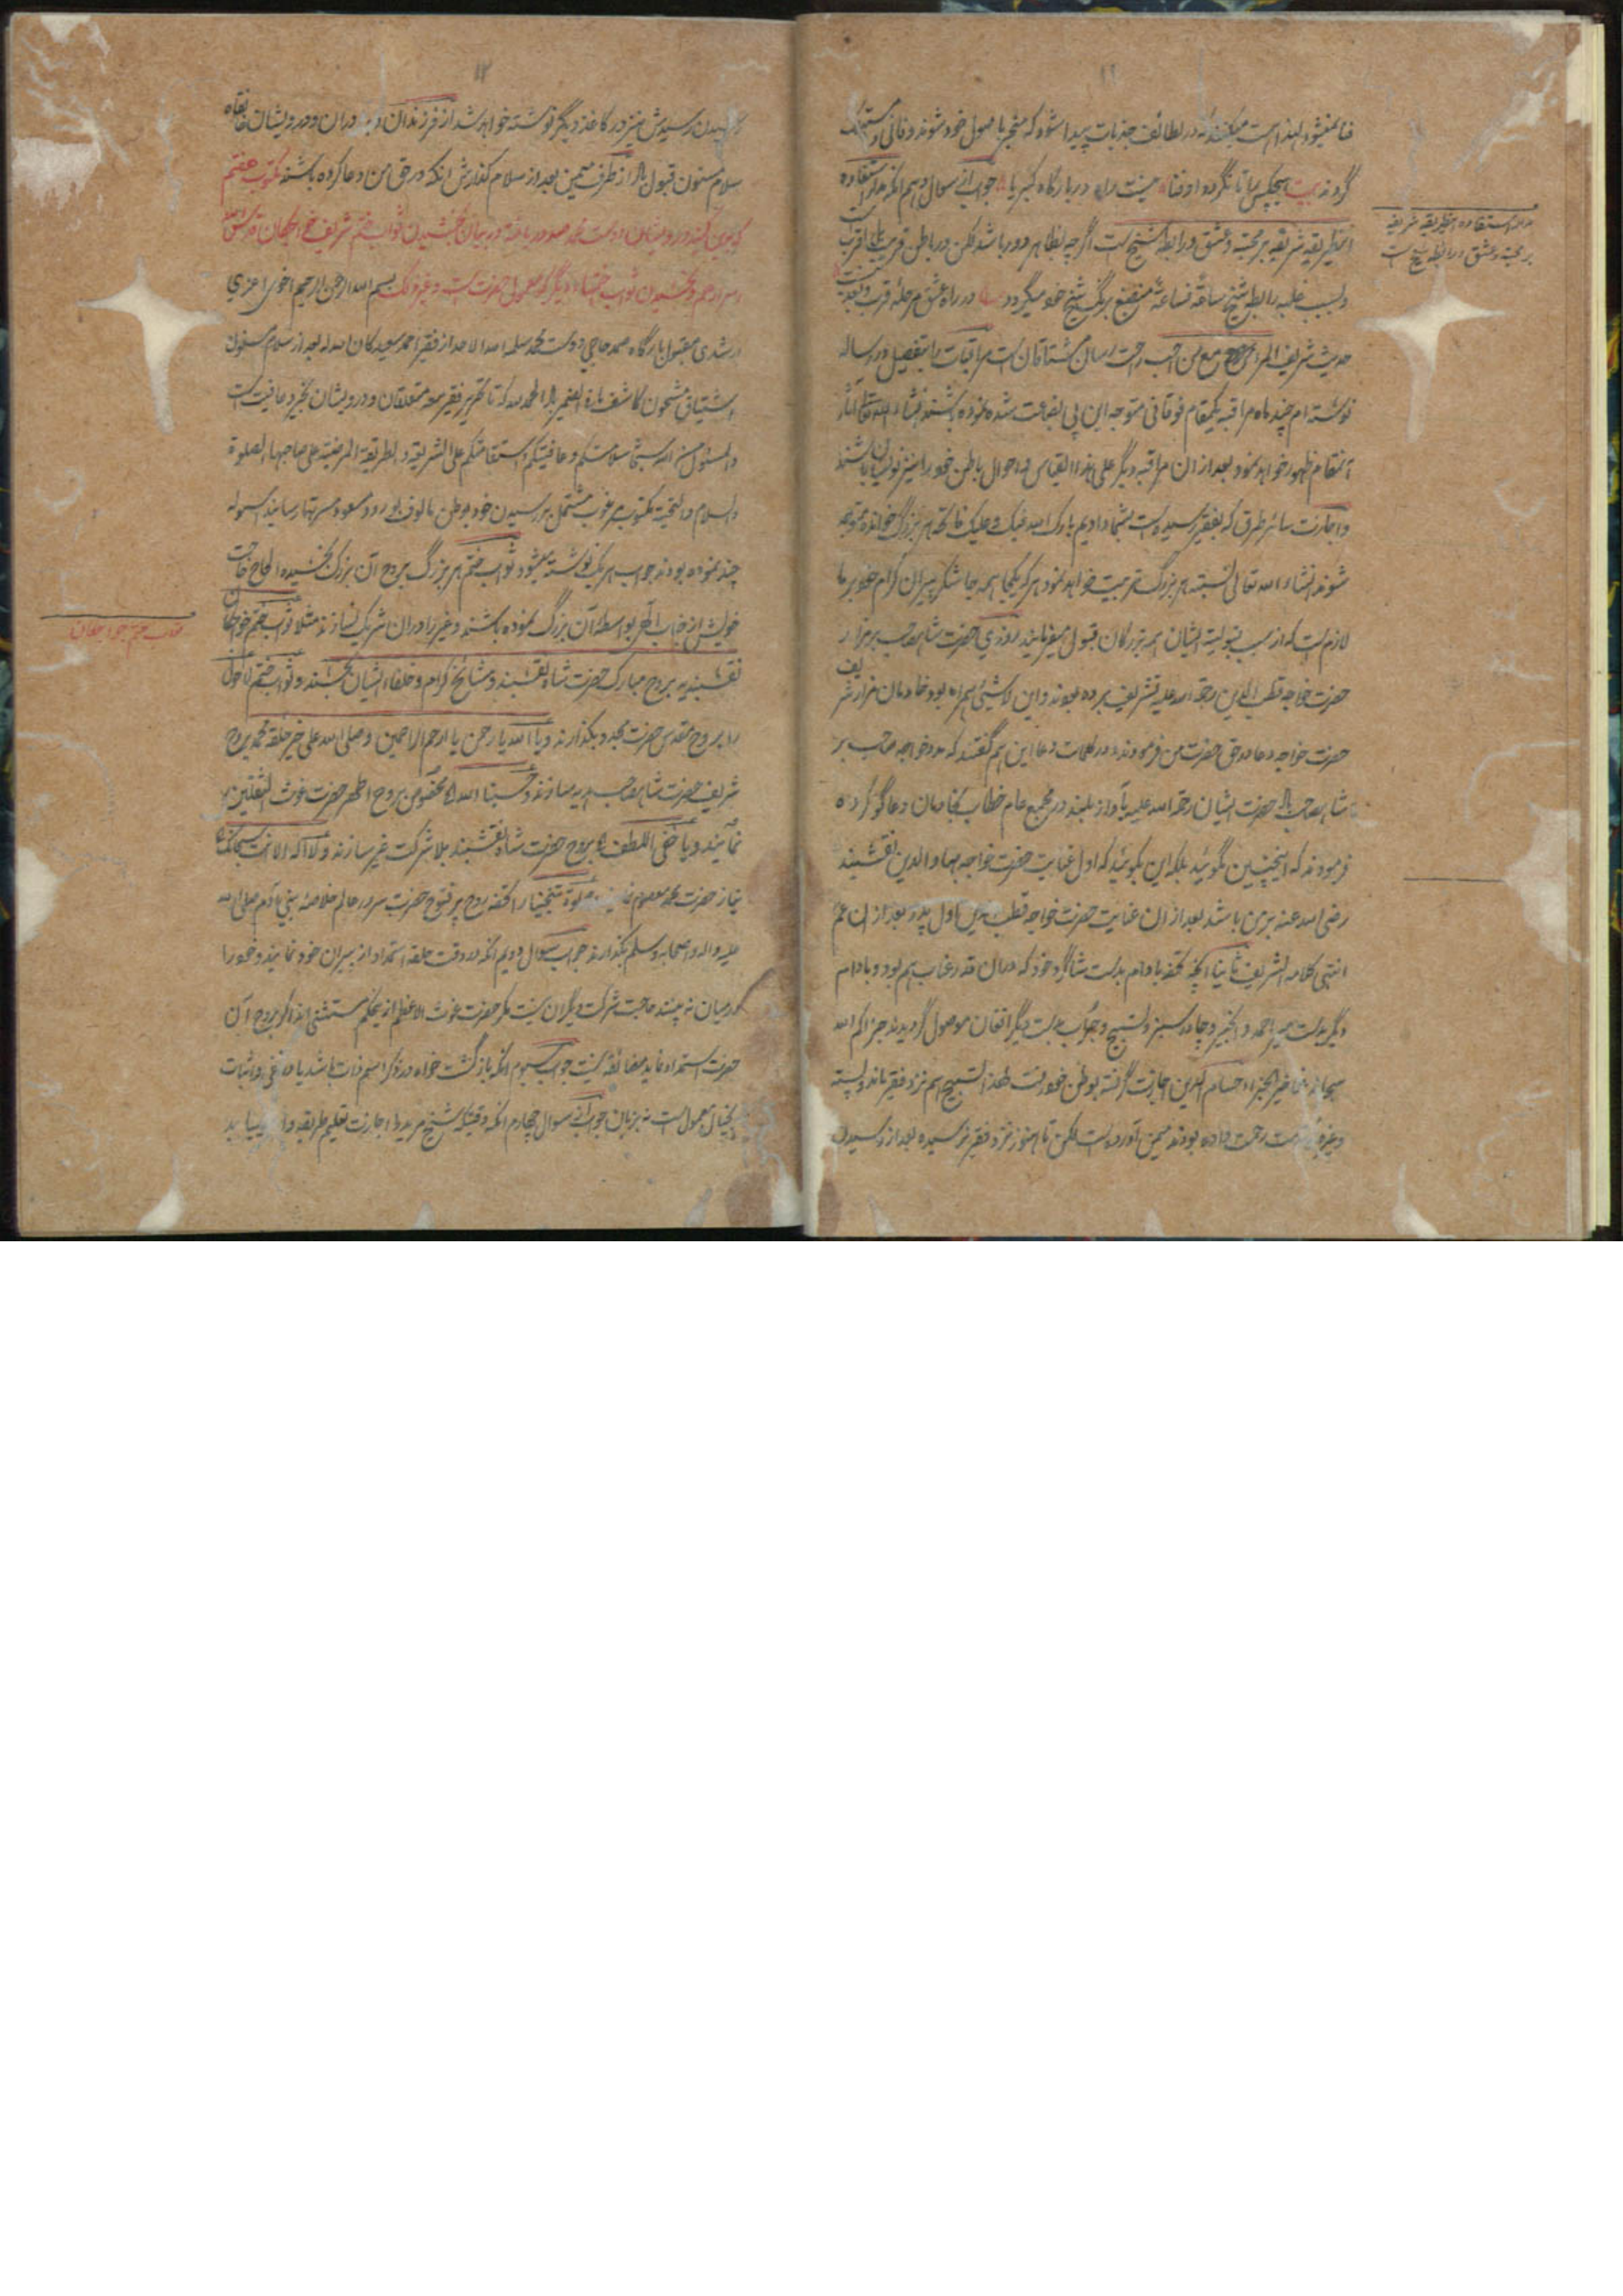 ۱۱
فنا میشود لهذا است میکنند که در لطائف جذبات پیدا شود که منجر با صول خود شوند و فانی و مستهلک
گردند بیت هیچکس را تا نگردد او فنا نیست ره در بارگاه کبریا جواب سوال دهم انکه مدار استفاده
این طریقه شریفه بر محبت و عشق و رابطه شیخ است اگر چه بظاهر دور باشد لکن در باطن قریب بلکه اقرب است
و بسبب غلبه رابطه شیخ ساعة فساعة منصبغ برنگ شیخ خود میگردد در راه عشق مرحله قرب و بعد نیست
حدیث شریف المرء مع من احب راحت رسان مشتاقان است مراقبات را بتفصیل در رساله
نوشته ام چند ماه مراقبه یکمقام فوقانی متوجه این بی بضاعت شده نموده باشند انشاء الله تعالی آثار
آنمقام ظهور خواهد نمود بعد از ان مراقبه دیگر علی هذا القیاس و احوال باطن خود را نیز نویسان باشند
و اجازت سائر طرق که بفقیر رسیده است بشما دادیم بارک الله فیک و علیک فاتحه هر بزرگ خوانده متوجه
شوند انشاء الله تعالی نسبت هر بزرگ تربیت خواهد نمود هر که یکجا همه جا شکر پیران کرام خود بر ما
لازم است که از سبب قبولیت ایشان همه بزرگان قبول میفرمایند روزی حضرت شاه صاحب بر مزار
حضرت خواجه قطب الدین رحمة الله علیه تشریف برده بودند و این لاشیئ همراه بود خادمان مزار شریف
حضرت خواجه دعا در حق حضرت من فرمودند در کلمات دعا این هم گفتند که مدد خواجه صاحب بر
شاه صاحب باد حضرت ایشان رحمة الله علیه بآواز بلند در مجمع عام خطاب بخادمان دعا گو کرده
فرمودند که اینچنین نگوئید بلکه این بگوئید که اول عنایت حضرت خواجه بهاء الدین نقشبند
رضی الله عنه بر من باشد بعد از ان عنایت حضرت خواجه قطب الدین اول پدر بعد از ان عم
انتهی کلامه الشریف ثانیا آنکه تحفه بادام بدست شاگرد خود که در ان قدر عناب هم بود و بادام
دیگر بدست میر احمد و انجیر و چادر سبز و تسبیح و جوراب بدست دیگر افغان موصول گردیدند جزاکم الله
سبحانه عنا خیر الجزاء حسام الدین اجازت گرفته بوطن خود رفت لهذا تسبیح هم نزد فقیر ماند و پسته
وغیره رحمت داده بودند همین آورده است لکن تا هنوز نزد فقیر نرسیده بعد از رسیدن
مدار استفاده اینطریقه شریفه
بر محبت و عشق و رابطه شیخ است
۱۲
رسیدن رسیدش نیز در کاغذ دیگر نوشته خواهد شد از فرزندان و برادران و درویشان خانقاه
سلام مسنون قبول باد از طرف متین بعد از سلام گذارش انکه در حق من دعا کرده باشند مکتوب هفتم
بکمترین کمینه درویشان دوست محمد صدور یافته در بیان بخشیدن ثواب ختم شریف خواجگان قدس الله
اسرارهم و بخشیدن ثواب ختمهاء دیگر که معمول حضرت است و غیر ذلک بسم الله الرحمن الرحیم اخوی اعزی
ارشدی مقبول بارگاه صمد حاجی دوست محمد سلمه الله الاحد از فقیر احمد سعید کان الله له بعد از سلام مسنون
اشتیاق مشحون کاشف ما فی الضمیر باد الحمد لله که تا تحریر فقیر معه متعلقان و درویشان بخیر و عافیت است
والمسئول من الله سبحانه سلامتکم و عافیتکم و استقامتکم علی الشریعة و الطریقة المرضیة علی صاحبها الصلوة
والسلام والتحیة مکتوب مرغوب مشتمل بر رسیدن خود بوطن مالوف بورود مسعود مسرتها رسانید اسوله
چند نموده بودند جواب هر یک نوشته میشود ثواب ختم هر بزرگ بروح آن بزرگ بخشیده الحاح حاجت
خویش از جناب الهی بواسطه آن بزرگ نموده باشند و غیر را در ان شریک نسازند مثلا ثواب ختم خواجگان
نقشبندیه بروح مبارک حضرت شاه نقشبند و مشائخ کرام و خلفاء ایشان بخشند و ثواب ختم لاحول
را بروح مقدس حضرت مجدد بگذارند و یا الله یا رحمن یا ارحم الراحمین و صلی الله علی خیر خلقه محمد بروح
شریف حضرت شاه صاحب هدیه سازند و حسبنا الله مخصوص بروح اطهر حضرت غوث الثقلین
نمایند و یا خفی اللطف بروح حضرت شاه نقشبند بلا شرکت غیر سازند و لا اله الا انت سبحانک
نیاز حضرت محمد معصوم صلوة تنجینا را تحفه روح پر فتوح حضرت سرور عالم خلاصه بنی آدم صلی الله
علیه واله واصحابه وسلم بگذارند جواب سوال دویم انکه در وقت حلقه استمداد از پیران خود نمایند و خود را
در میان نه بینند حاجت شرکت دیگران نیست مگر حضرت غوث الاعظم از ینحکم مستثنی اند اگر بروح آن
حضرت استمداد نماید مضائقه نیست جواب سیوم انکه بازگشت خواه در ذکر اسم ذات باشد یا در نفی و اثبات
بخیال معمول است نه بزبان جواب سوال چهارم انکه وقتیکه شیخ مرید را اجازت تعلیم طریقه داد
ثواب ختم خواجگان